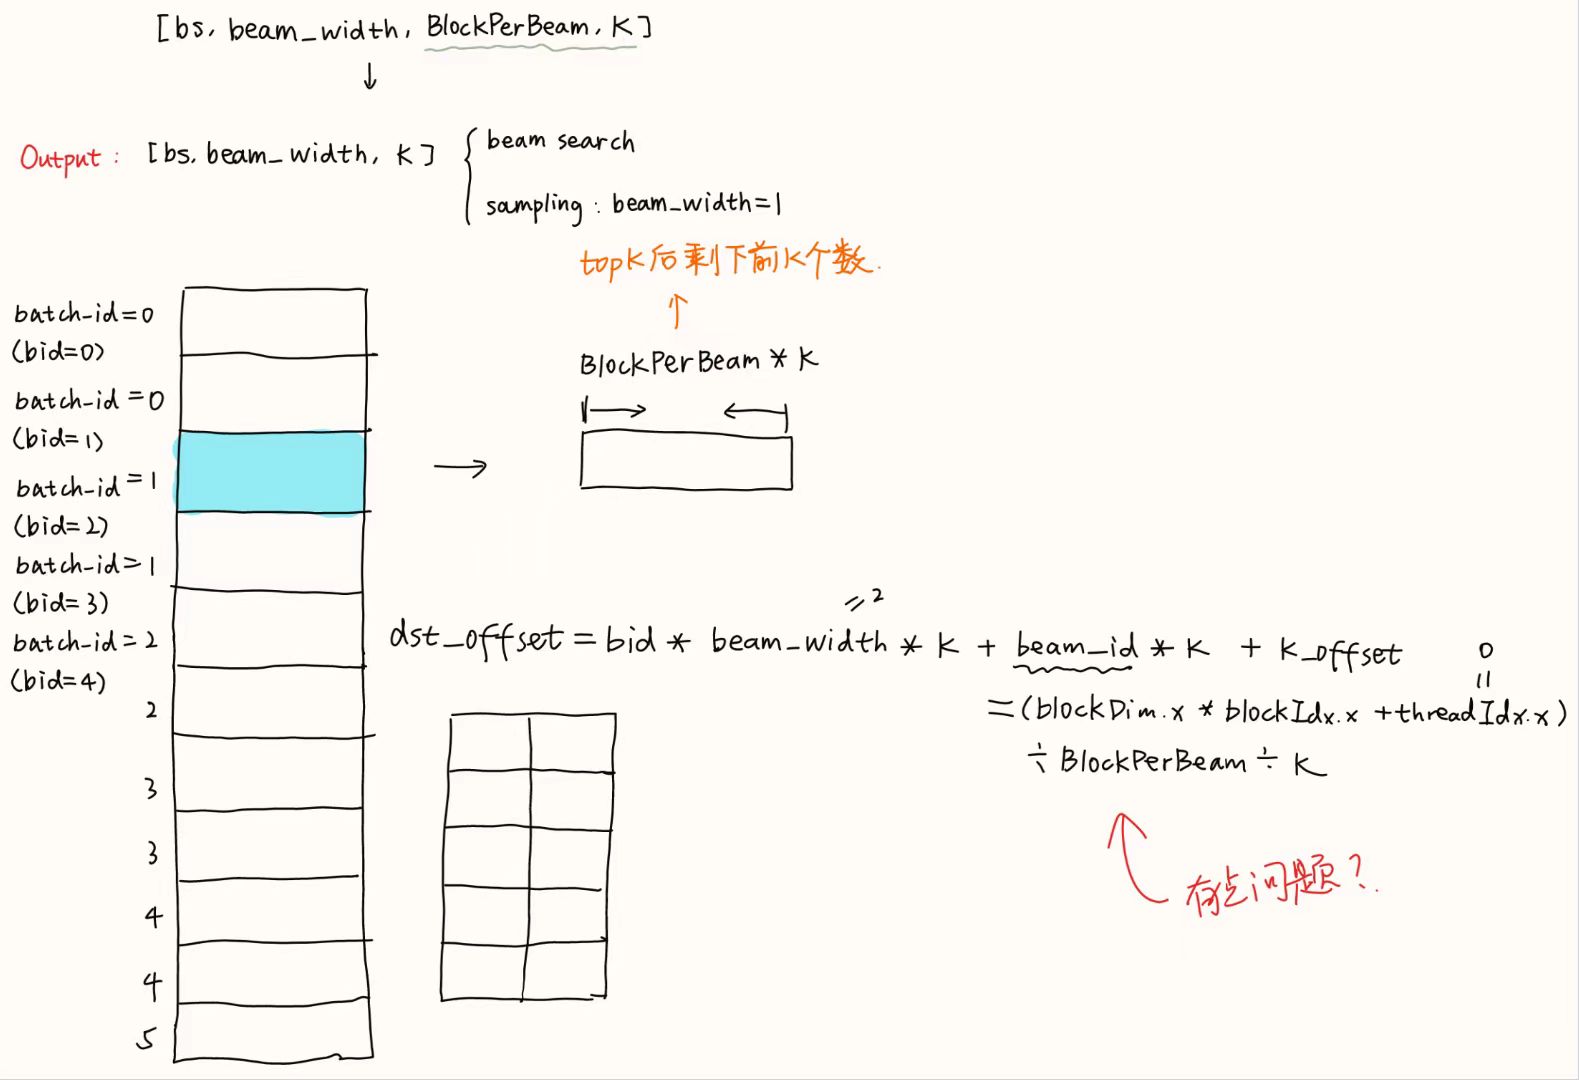 [bs, beam_width, BlockPerBeam, K]
↓
Output: [bs, beam_width, K]
beam search
sampling: beam_width=1
topK后剩下前K个数.
↑
BlockPerBeam * K
batch-id=0
(bid=0)
batch-id=0
(bid=1)
batch-id=1
(bid=2)
batch-id=1
(bid=3)
batch-id=2
(bid=4)
2
3
3
4
4
5
=2
dst_offset = bid * beam_width * K + beam_id * K + K_offset
0
=
=(blockDim.x * blockIdx.x + threadIdx.x)
÷ BlockPerBeam ÷ K
有点问题?